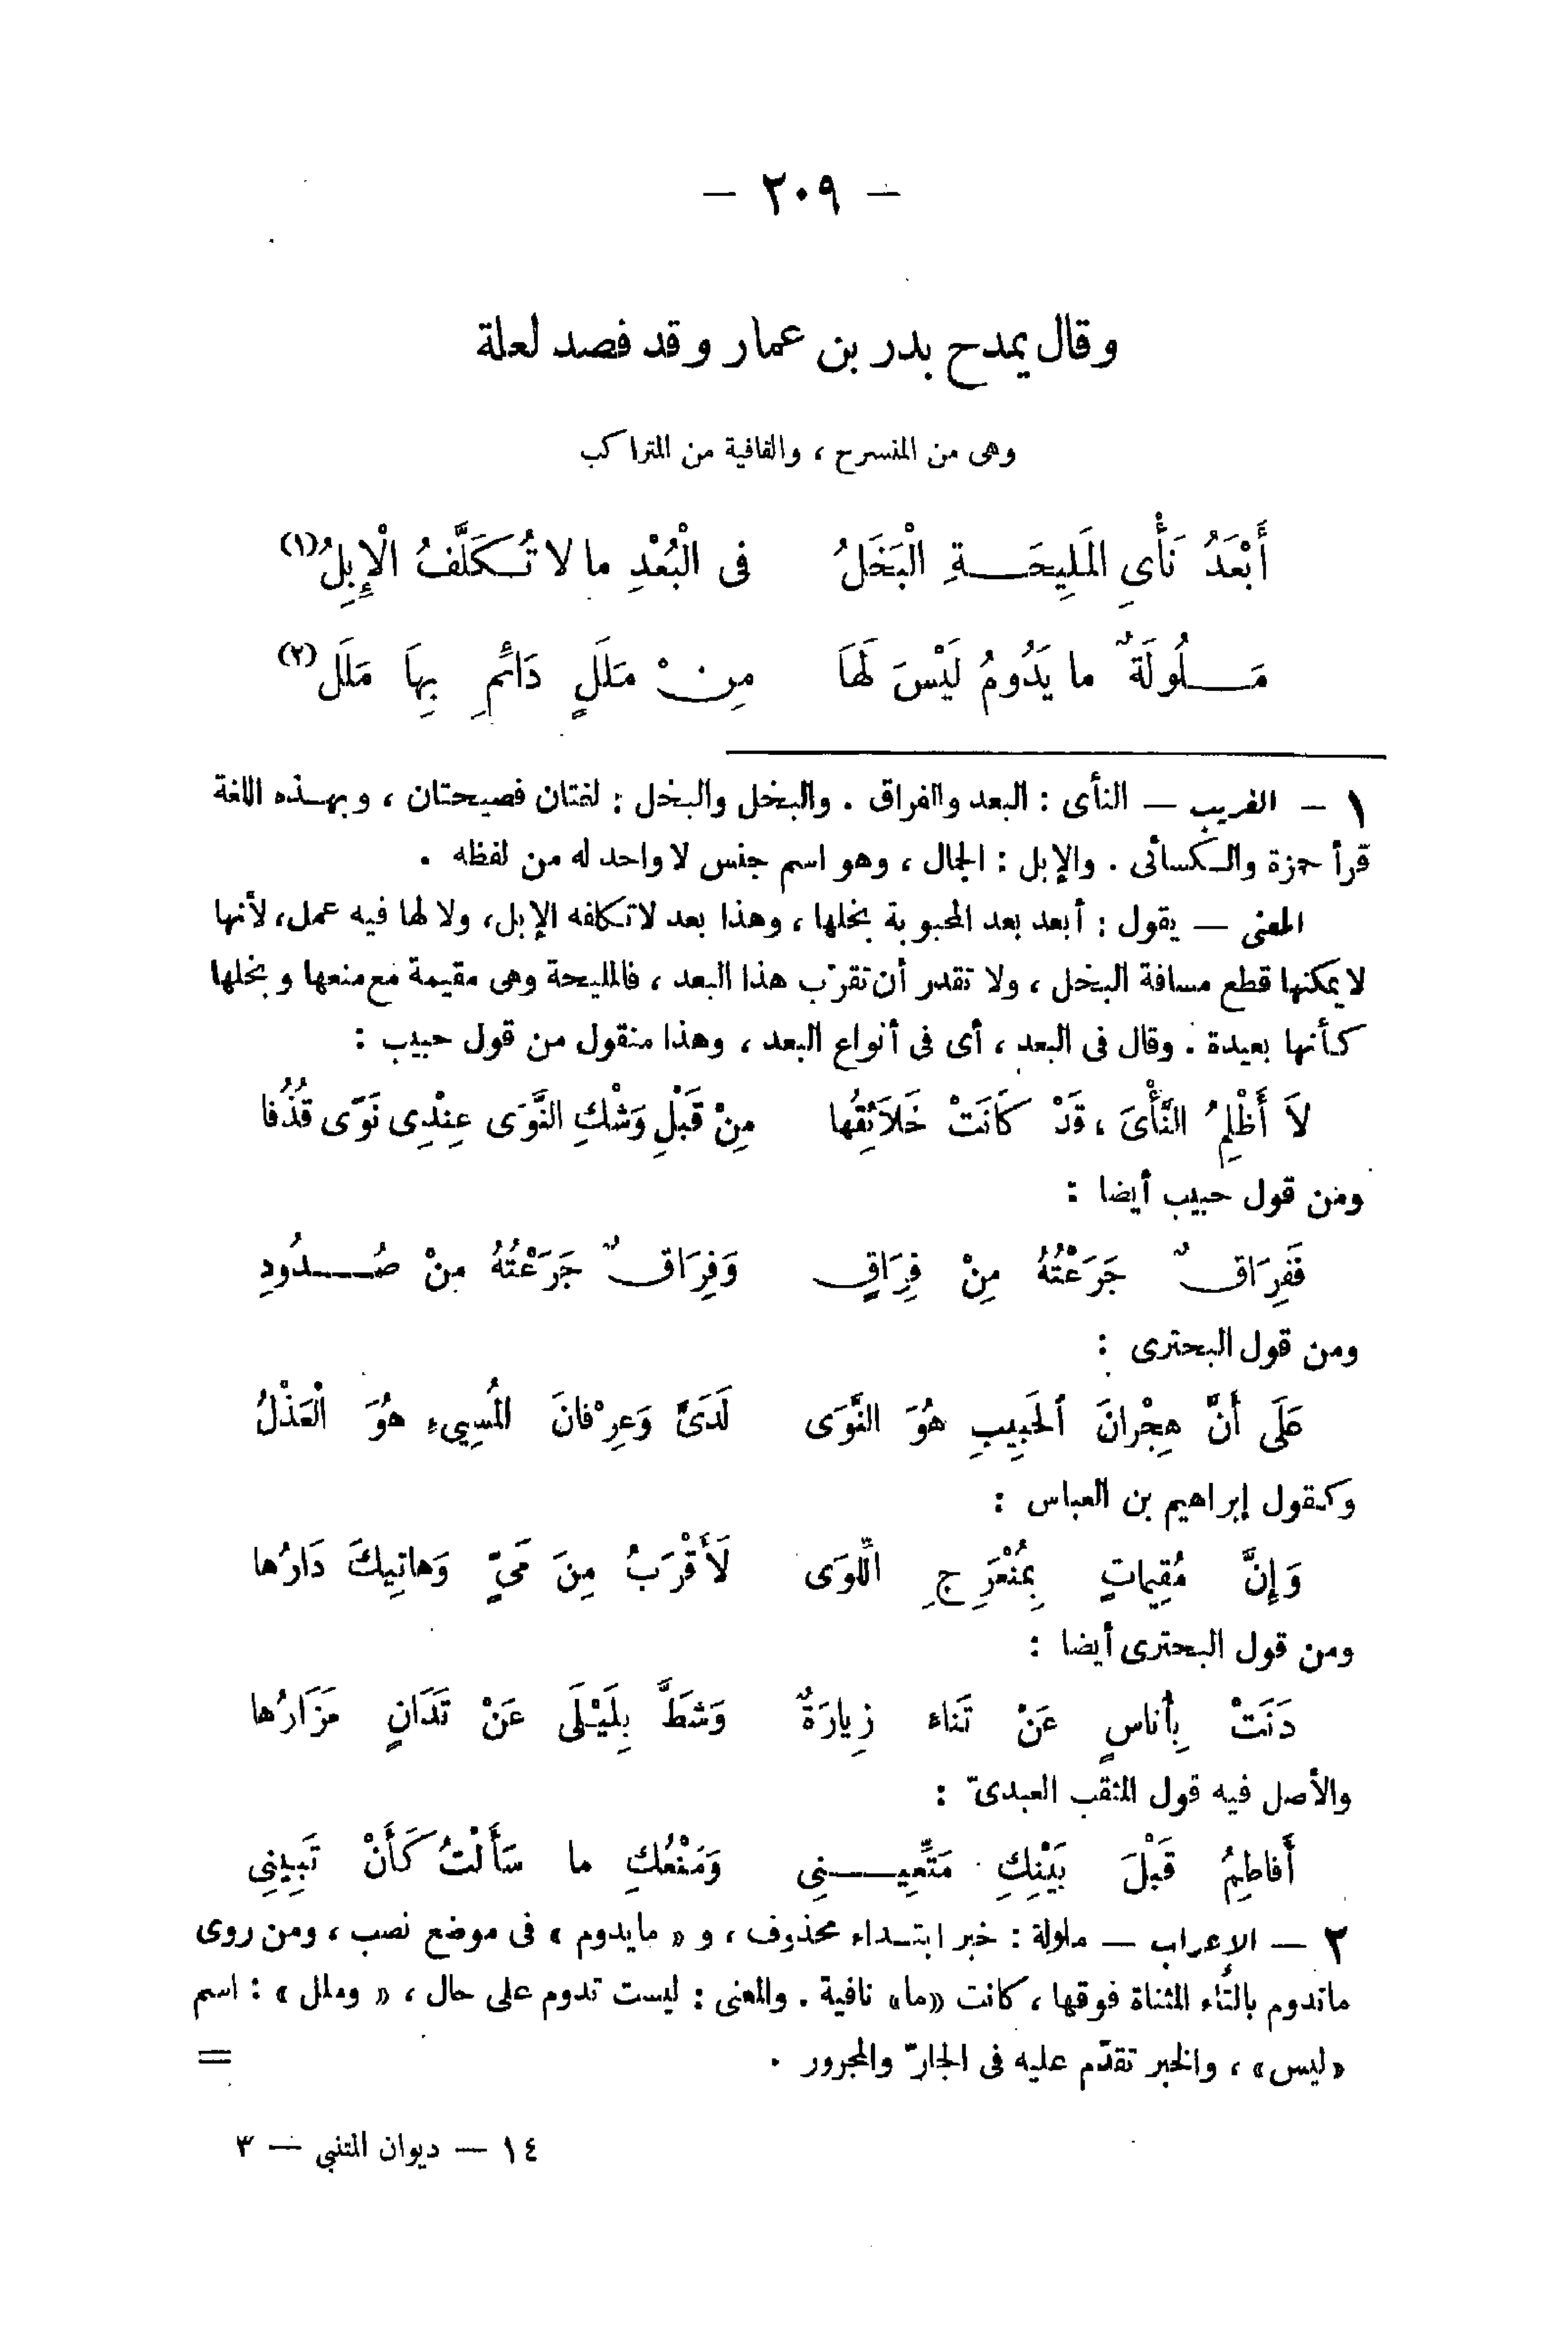 — ٢٠٩ —
وقال يمدح بدر بن عمار وقد فصد لعلة
وهى من المنسرح ، والقافية من المتراكب
أَبْعَدُ نَأْىِ المَلِيحَةِ الْبَخَلُ فى الْبُعْدِ ما لا تُكَلَّفُ الْإِبِلُ (١)
مَلُولَةٌ ما يَدُومُ لَيْسَ لَهَا مِنْ مَلَلٍ دَائِمٍ بِهَا مَلَل (٢)
١ — الغريب — النأى : البعد والفراق . والبخل والبخل : لغتان فصيحتان ، وبهذه اللغة
قرأ حمزة والكسائى . والإبل : الجمال ، وهو اسم جنس لا واحد له من لفظه .
المعنى — يقول : أبعد بعد المحبوبة بخلها ، وهذا بعد لا تكلفه الإبل، ولا لها فيه عمل، لأنها
لا يمكنها قطع مسافة البخل ، ولا تقدر أن تقرّب هذا البعد ، فالمليحة وهى مقيمة مع منعها وبخلها
كأنها بعيدة . وقال فى البعد ، أى فى أنواع البعد ، وهذا منقول من قول حبيب :
لاَ أَظْلِمُ النَّأْىَ ، قَدْ كَانَتْ خَلاَئِقُها مِنْ قَبْلِ وَشْكِ النَّوَى عِنْدِى نَوًى قُذُفا
ومن قول حبيب أيضا :
فَفِرَاقٌ جَرَعْتُهُ مِنْ فِرَاقٍ وَفِرَاقٌ جَرَعْتُهُ مِنْ صُدُودِ
ومن قول البحترى :
عَلَى أَنَّ هِجْرانَ الحَبِيبِ هُوَ النَّوَى لَدَىَّ وَعِرْفانَ المُسِيءِ هُوَ الْعَذْلُ
وكقول إبراهيم بن العباس :
وَإِنَّ مُقِيماتٍ بِمُنْعَرِجِ اللِّوَى لَأَقْرَبُ مِنَ مَىٍّ وَهاتِيكَ دَارُها
ومن قول البحترى أيضا :
دَنَتْ بِأُناسٍ عَنْ تَناءِ زِيارَةٌ وَشَطَّ بِلَيْلَى عَنْ تَدَانٍ مَزَارُها
والأصل فيه قول المثقب العبدىّ :
أَفاطِمُ قَبْلَ بَيْنِكِ مَتِّعِينِى وَمَنْعُكِ ما سَأَلْتُ كَأَنْ تَبِينِى
٢ — الإعراب — ملولة : خبر ابتداء محذوف ، و « مايدوم » فى موضع نصب ، ومن روى
ماتدوم بالتاء المثناة فوقها ، كانت «ما» نافية . والمعنى : ليست تدوم على حال ، « وملل » : اسم
«ليس» ، والخبر تقدّم عليه فى الجارّ والمجرور . =
١٤ — ديوان المتنبي — ٣